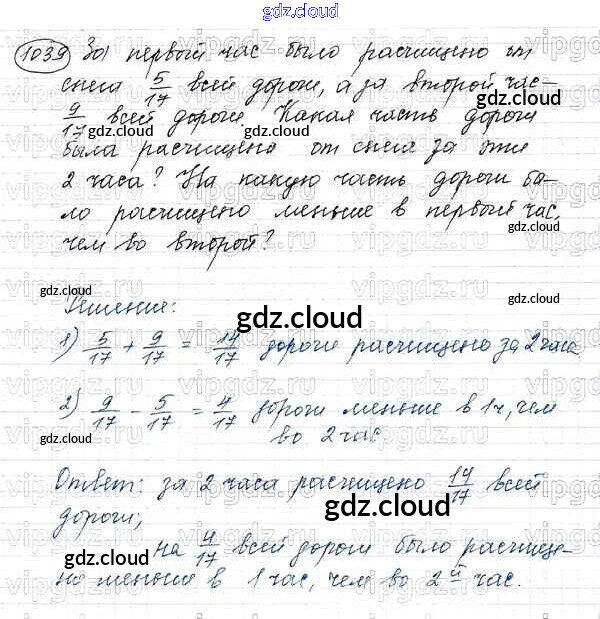 gdz.cloud
1039 За первый час было расчищено от
снега 5/17 всей дороги, а за второй час-
9/17 всей дороги. Какая часть дороги
была расчищено от снега за эти
2 часа? На какую часть дороги бы-
ло расчищено меньше в первый час,
чем во второй?
Решение:
1) 5/17 + 9/17 = 14/17 дороги расчищено за 2 часа.
2) 9/17 - 5/17 = 4/17 дороги меньше в 1ч, чем
во 2 час.
Ответ: за 2 часа расчищено 14/17 всей
дороги;
на 4/17 всей дороги было расчище-
но меньше в 1 час, чем во 2й час.